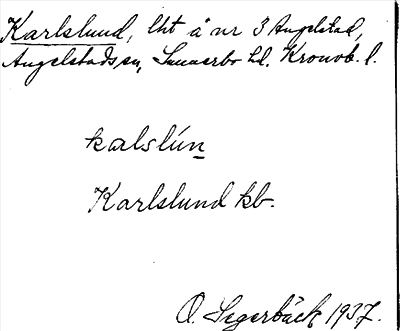 Karlslund, lht å nr 3 Angelstad,
Angelstads sn, Sunnerbo hd. Kronob. l.
kalslún
Karlslund kb.
O. Segerbäck 1937.